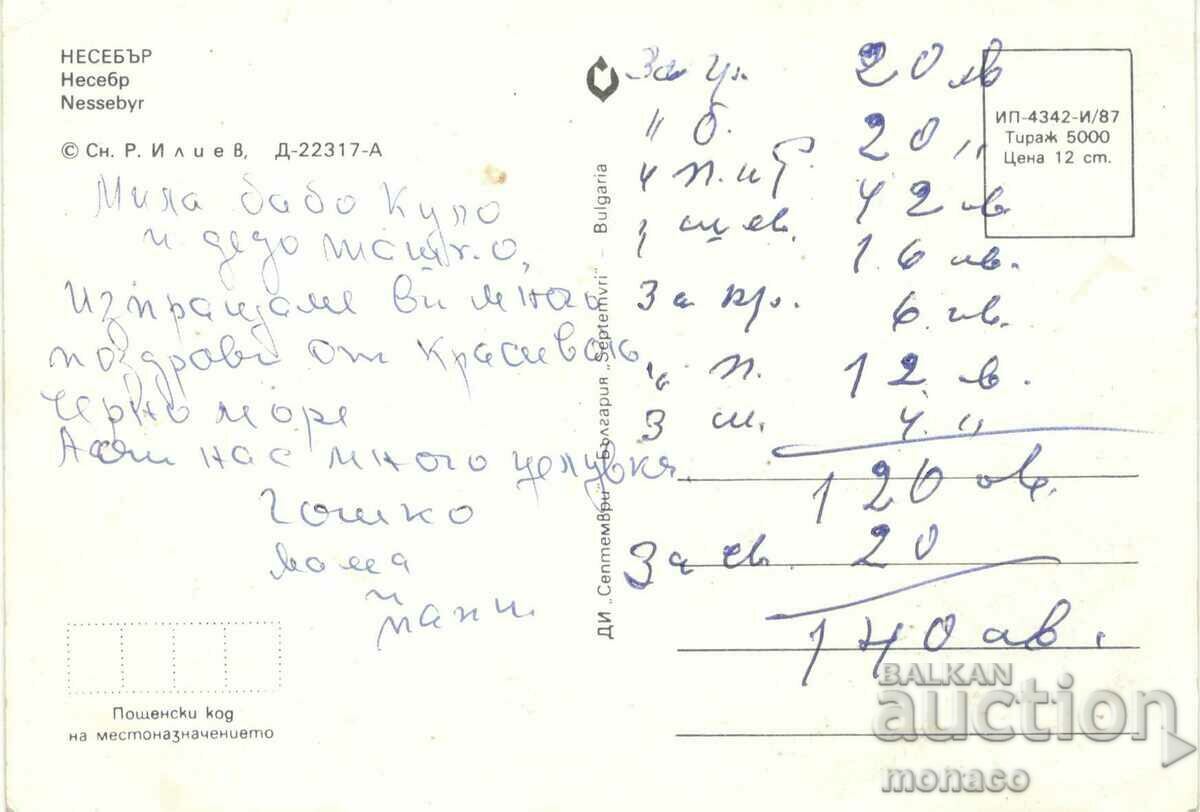 НЕСЕБЪР
Несебр
Nessebyr
© Сн. Р. Илиев, Д-22317-А
Мила бабо
и дедо
изпращаме ви много
поздрави от красивото
Черно море
А от нас много целувки
Гошко
мама
и
тати
Пощенски код
на местоназначението
ДИ „Септември" България „Septemvri" – Bulgaria
ИП-4342-И/87
Тираж 5000
Цена 12 ст.
За 20 лв
" б. 20 "
42 лв
16 лв.
За 6 лв.
" п. 12 в.
З ш. 4. "
120 лв.
За св. 20
140 лв.
BALKAN
auction
monaco